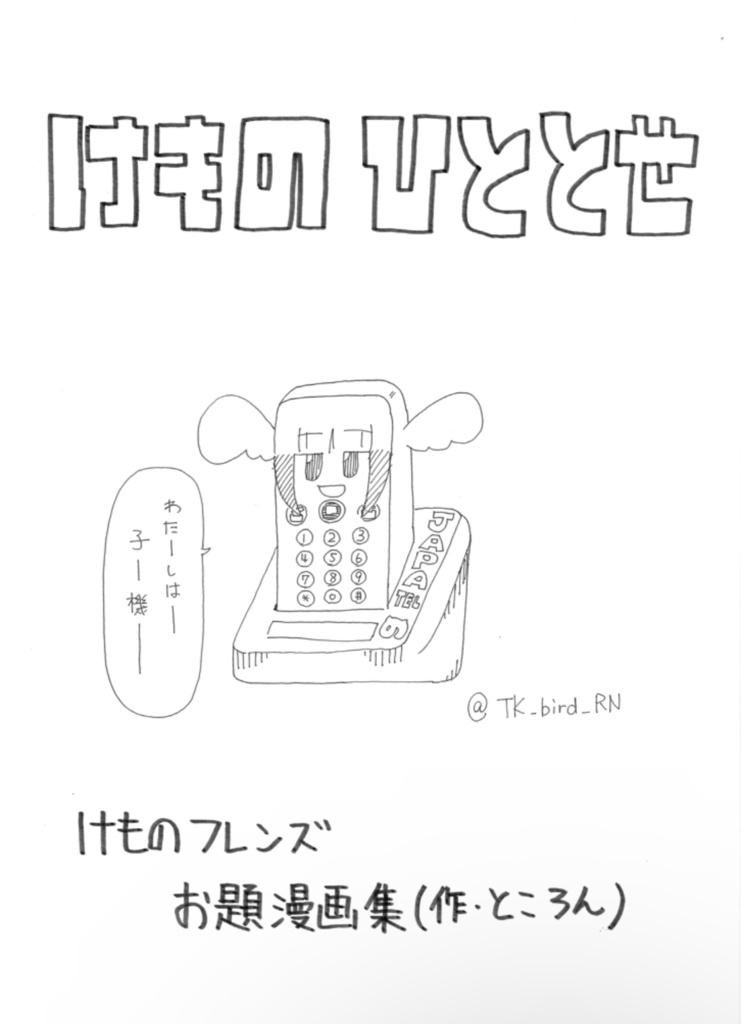 けもの ひととせ
わたーしはー
子ー機ー
1 2 3
4 5 6
7 8 9
* 0 #
JAPA
TEL
6
@TK_bird_RN
けものフレンズ
お題漫画集(作・ところん)